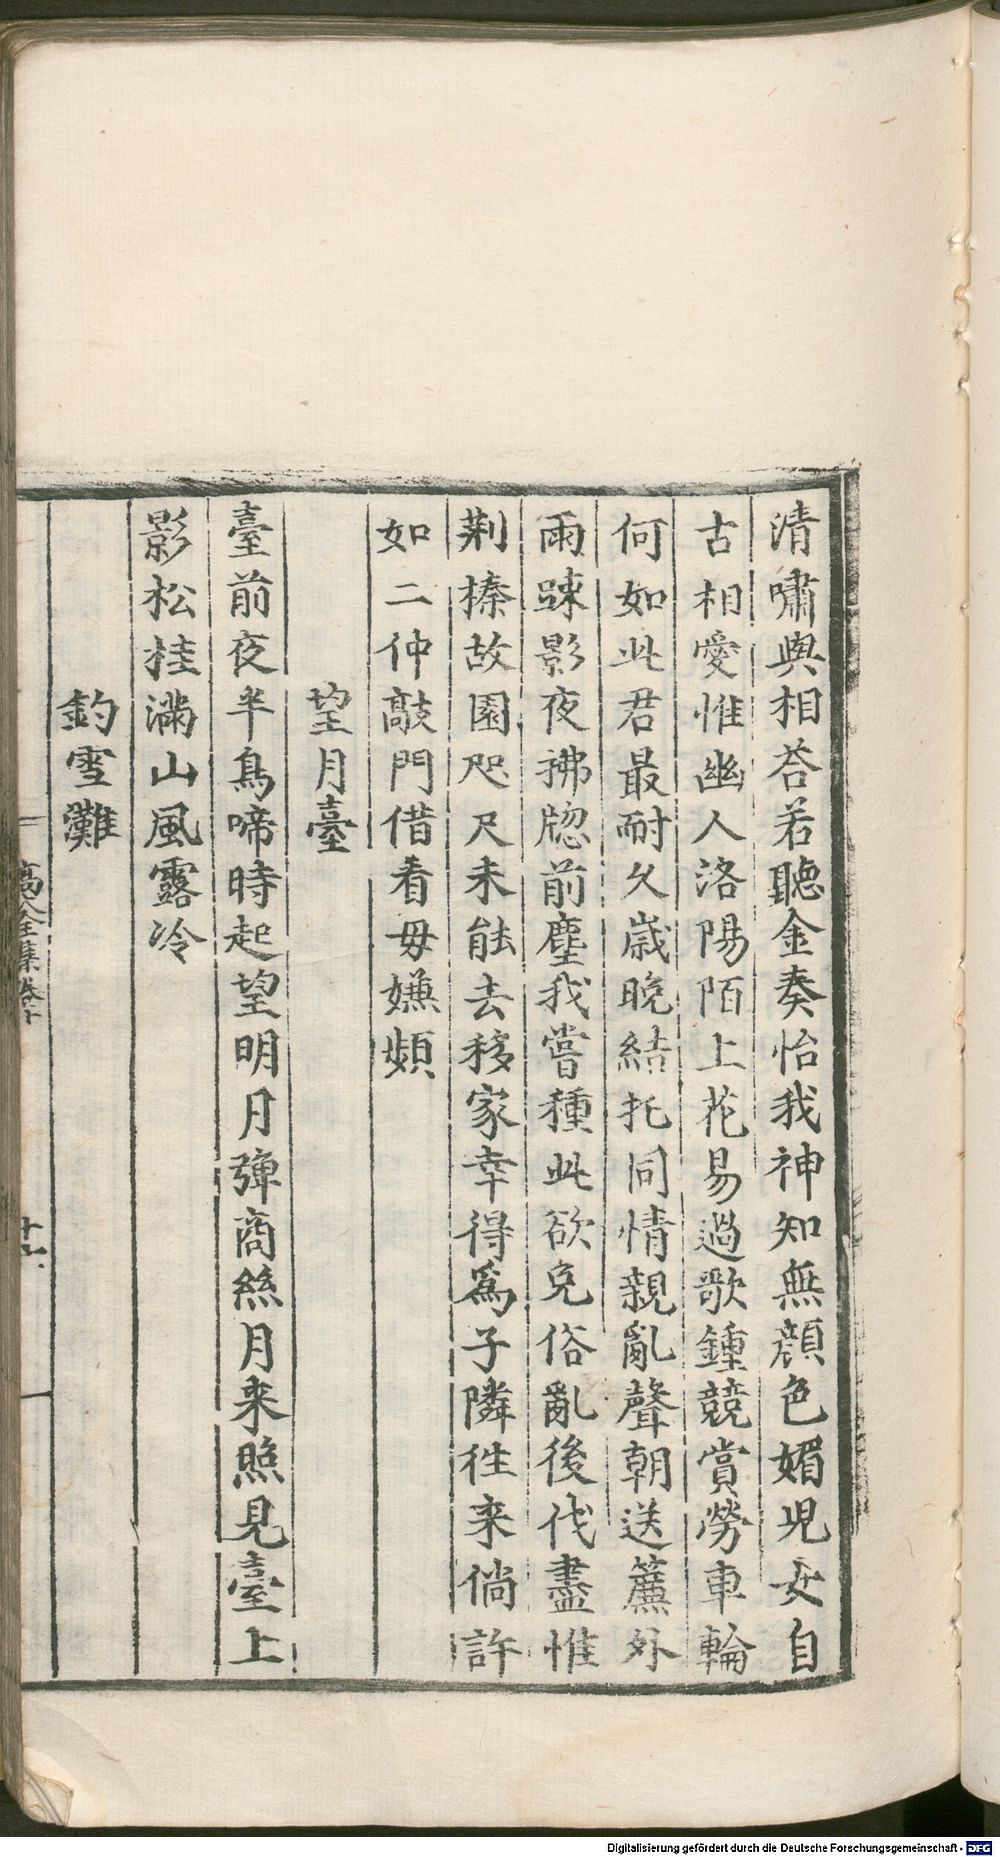 清嘯與相荅若聽金奏怡我神知無顔色媚児女自
古相愛惟幽人洛陽陌上花易過歌鍾競賞勞車輪
何如此君最耐久歲晚結托同情親亂聲朝送簾外
雨踈影夜拂牎前塵我嘗種此欲免俗亂後伐盡惟
荆榛故園咫尺未能去移家幸得爲子隣徃来倘許
如二仲敲門借看毋嫌頻
望月臺
臺前夜半烏啼時起望明月彈商絲月来照見臺上
影松桂滿山風露冷
釣雪灘
高全集卷十
十六
Digitalisierung gefördert durch die Deutsche Forschungsgemeinschaft - DFG